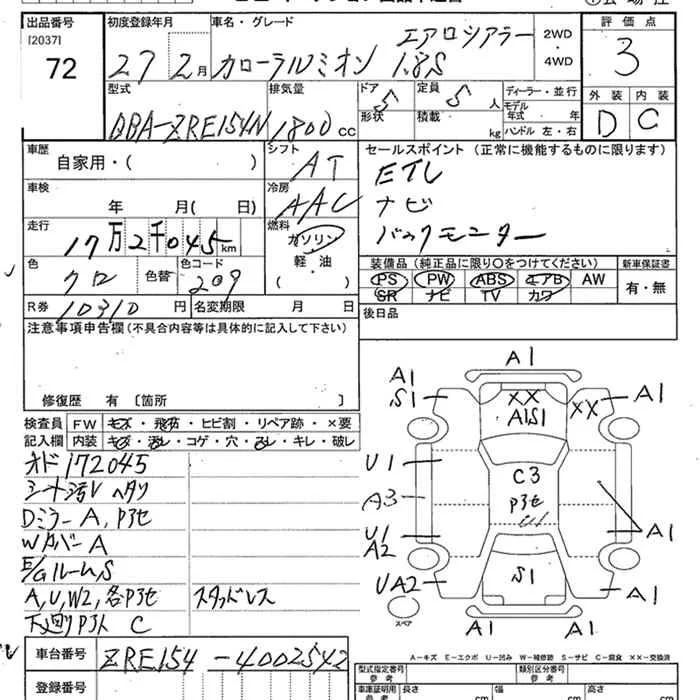 出品番号 初度登録年月 車名・グレード 評価点
[2037] エアロツアラー 2WD
72 27 2月 カローラルミオン 1.8S ・4WD 3
型式 排気量 ドア 定員 ディーラー・並行 外装 内装
モデル年式 年
DBA-ZRE154N 1800cc 5 5人 D C
形状 積載 kg ハンドル 左・右
車歴 シフト セールスポイント(正常に機能するものに限ります)
自家用・( ) AT ETC
車検 冷房 ナビ
年 月( 日) AAC バックモニター
走行 燃料
17万2千045km ガソリン
色 色替 色コード 軽・油 装備品(純正品に限り○をつけてください) 新車保証書
クロ 209 ( ) PS PW ABS エアB AW 有・無
SR ナビ TV カワ
R券 10310円 名変期限 月 日 後日品
注意事項申告欄(不具合内容等は具体的に記入して下さい)
修復歴 有 〔箇所 〕
検査員 FW キズ・飛石・ヒビ割・リペア跡・×要
記入欄 内装 キズ・汚レ・コゲ・穴・スレ・キレ・破レ
オド172045
シート汚レ ヘタリ
Dミラー A, P3セ
Wカバー A
E/Gルーム S
A, U, W2, 各P3セ スタッドレス
下回りP3ト C
A1
A1
S1
XX
A1S1
XX
A1
U1
C3
P3セ
A3
U1
A2
A1
UA2
S1
A1
A1
A1
スペア
A−キズ E−エクボ U−凹み W−補修跡 S−サビ C−腐食 ××−交換済
車台番号 ZRE154-4002542
登録番号
型式指定番号 参考 類別区分番号 参考
車庫証明用 参考 長さ cm 幅 cm 高さ cm